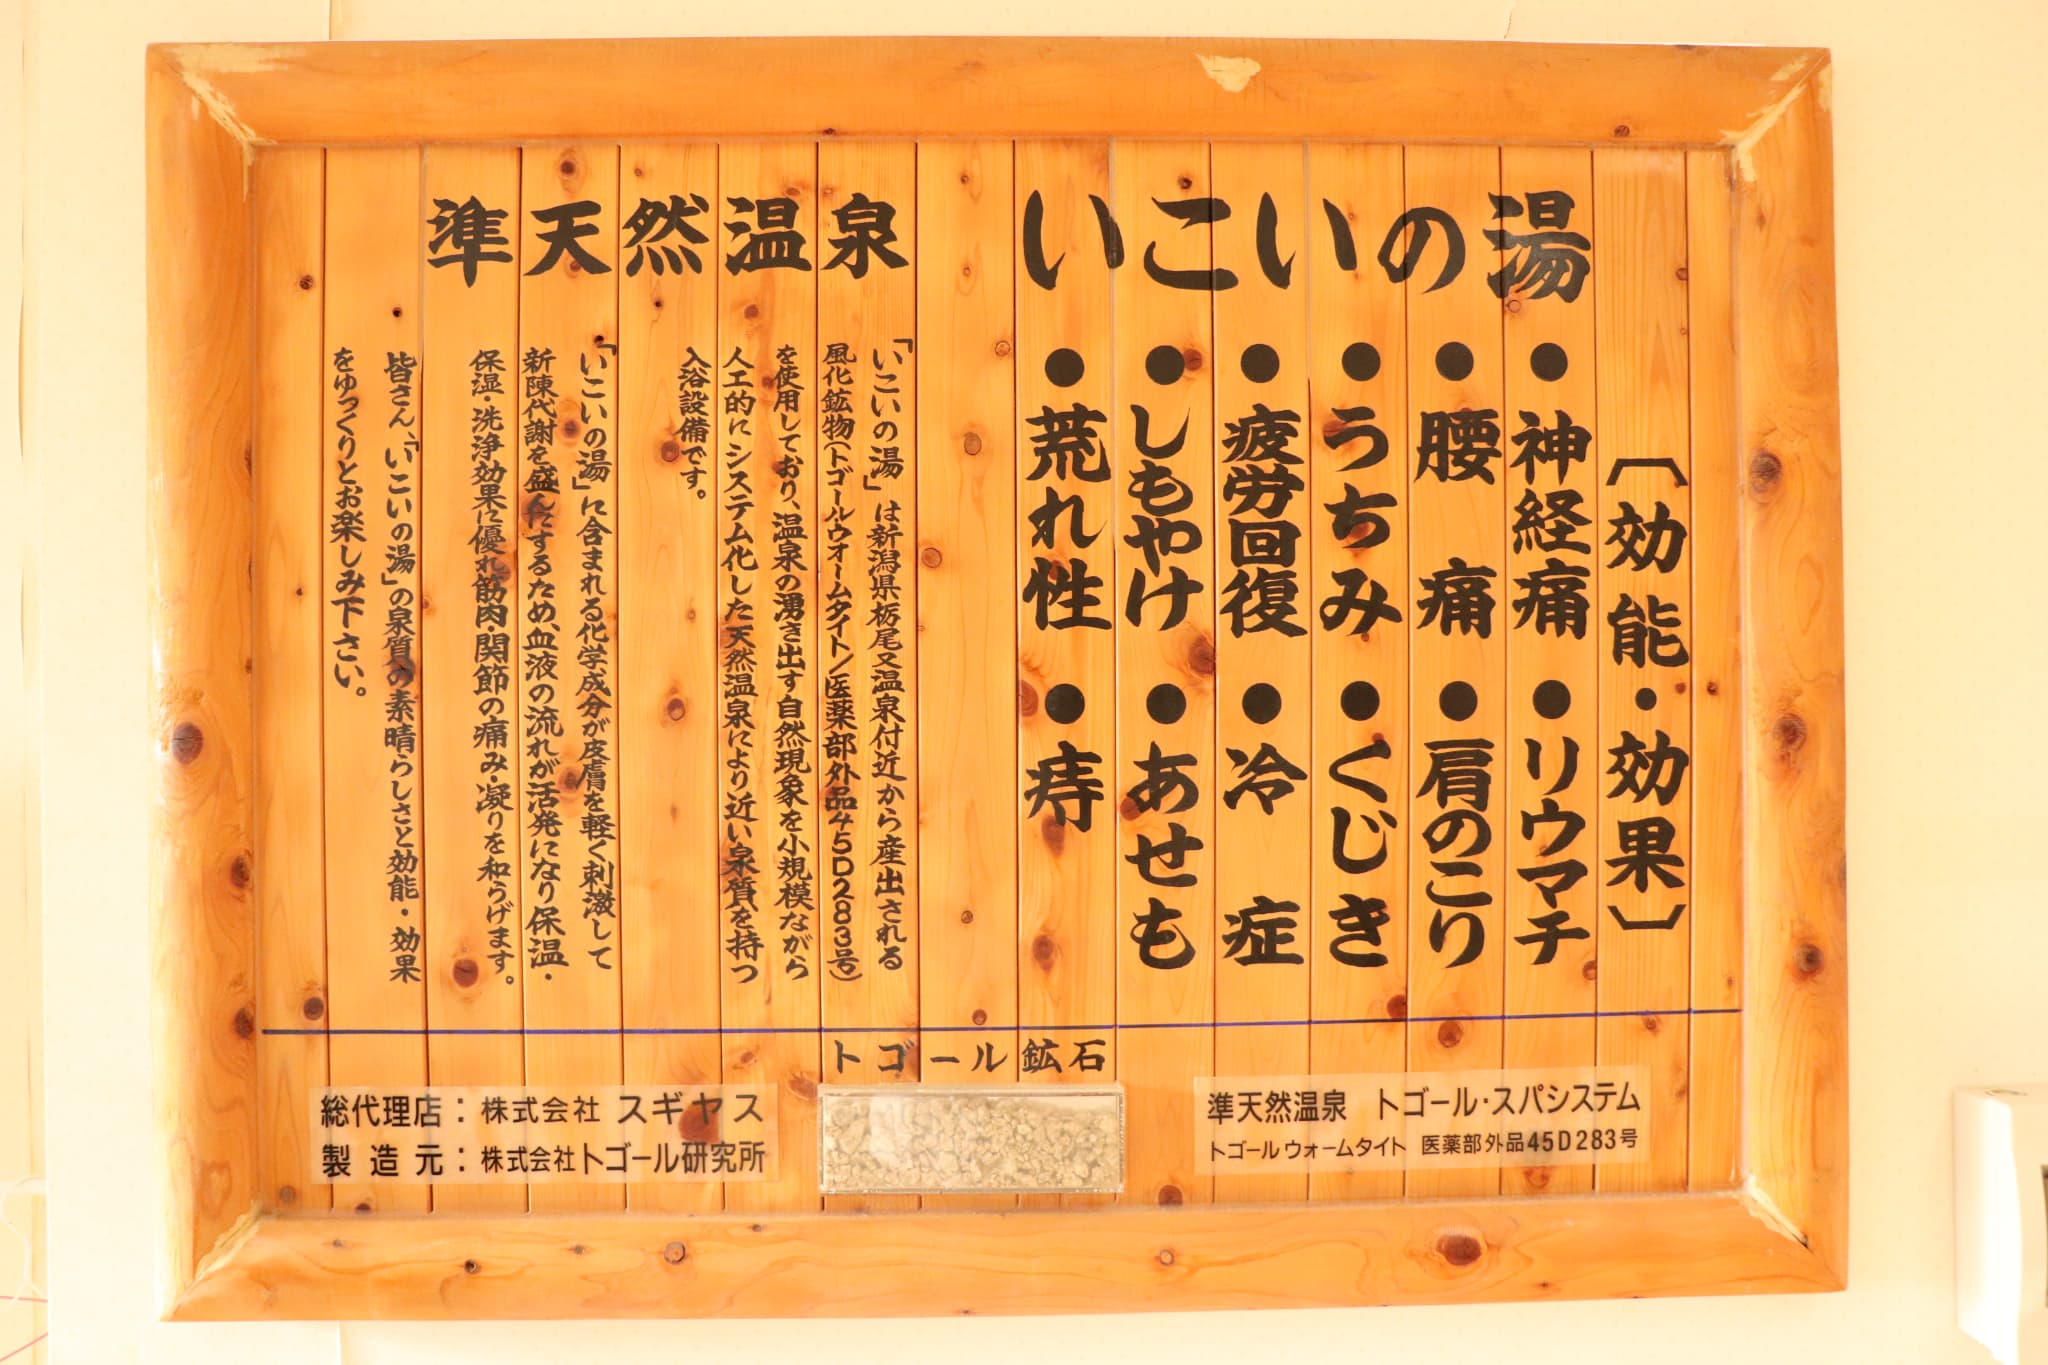 準天然温泉 いこいの湯
〔効能・効果〕
●神経痛 ●リウマチ
●腰痛 ●肩のこり
●うちみ ●くじき
●疲労回復 ●冷症
●しもやけ ●あせも
●荒れ性 ●痔
「いこいの湯」は新潟県栃尾又温泉付近から産出される
風化鉱物(トゴールウォームタイト/医薬部外品45D283号)
を使用しており、温泉の湧き出す自然現象を小規模ながら
人工的にシステム化した天然温泉により近い泉質を持つ
入浴設備です。
「いこいの湯」に含まれる化学成分が皮膚を軽く刺激して
新陳代謝を盛んにするため、血液の流れが活発になり保温・
保湿・洗浄効果に優れ筋肉・関節の痛み・凝りを和らげます。
皆さん、「いこいの湯」の泉質の素晴らしさと効能・効果
をゆっくりとお楽しみ下さい。
トゴール鉱石
総代理店：株式会社 スギヤス
製造元：株式会社トゴール研究所
準天然温泉 トゴール・スパシステム
トゴールウォームタイト 医薬部外品45D283号